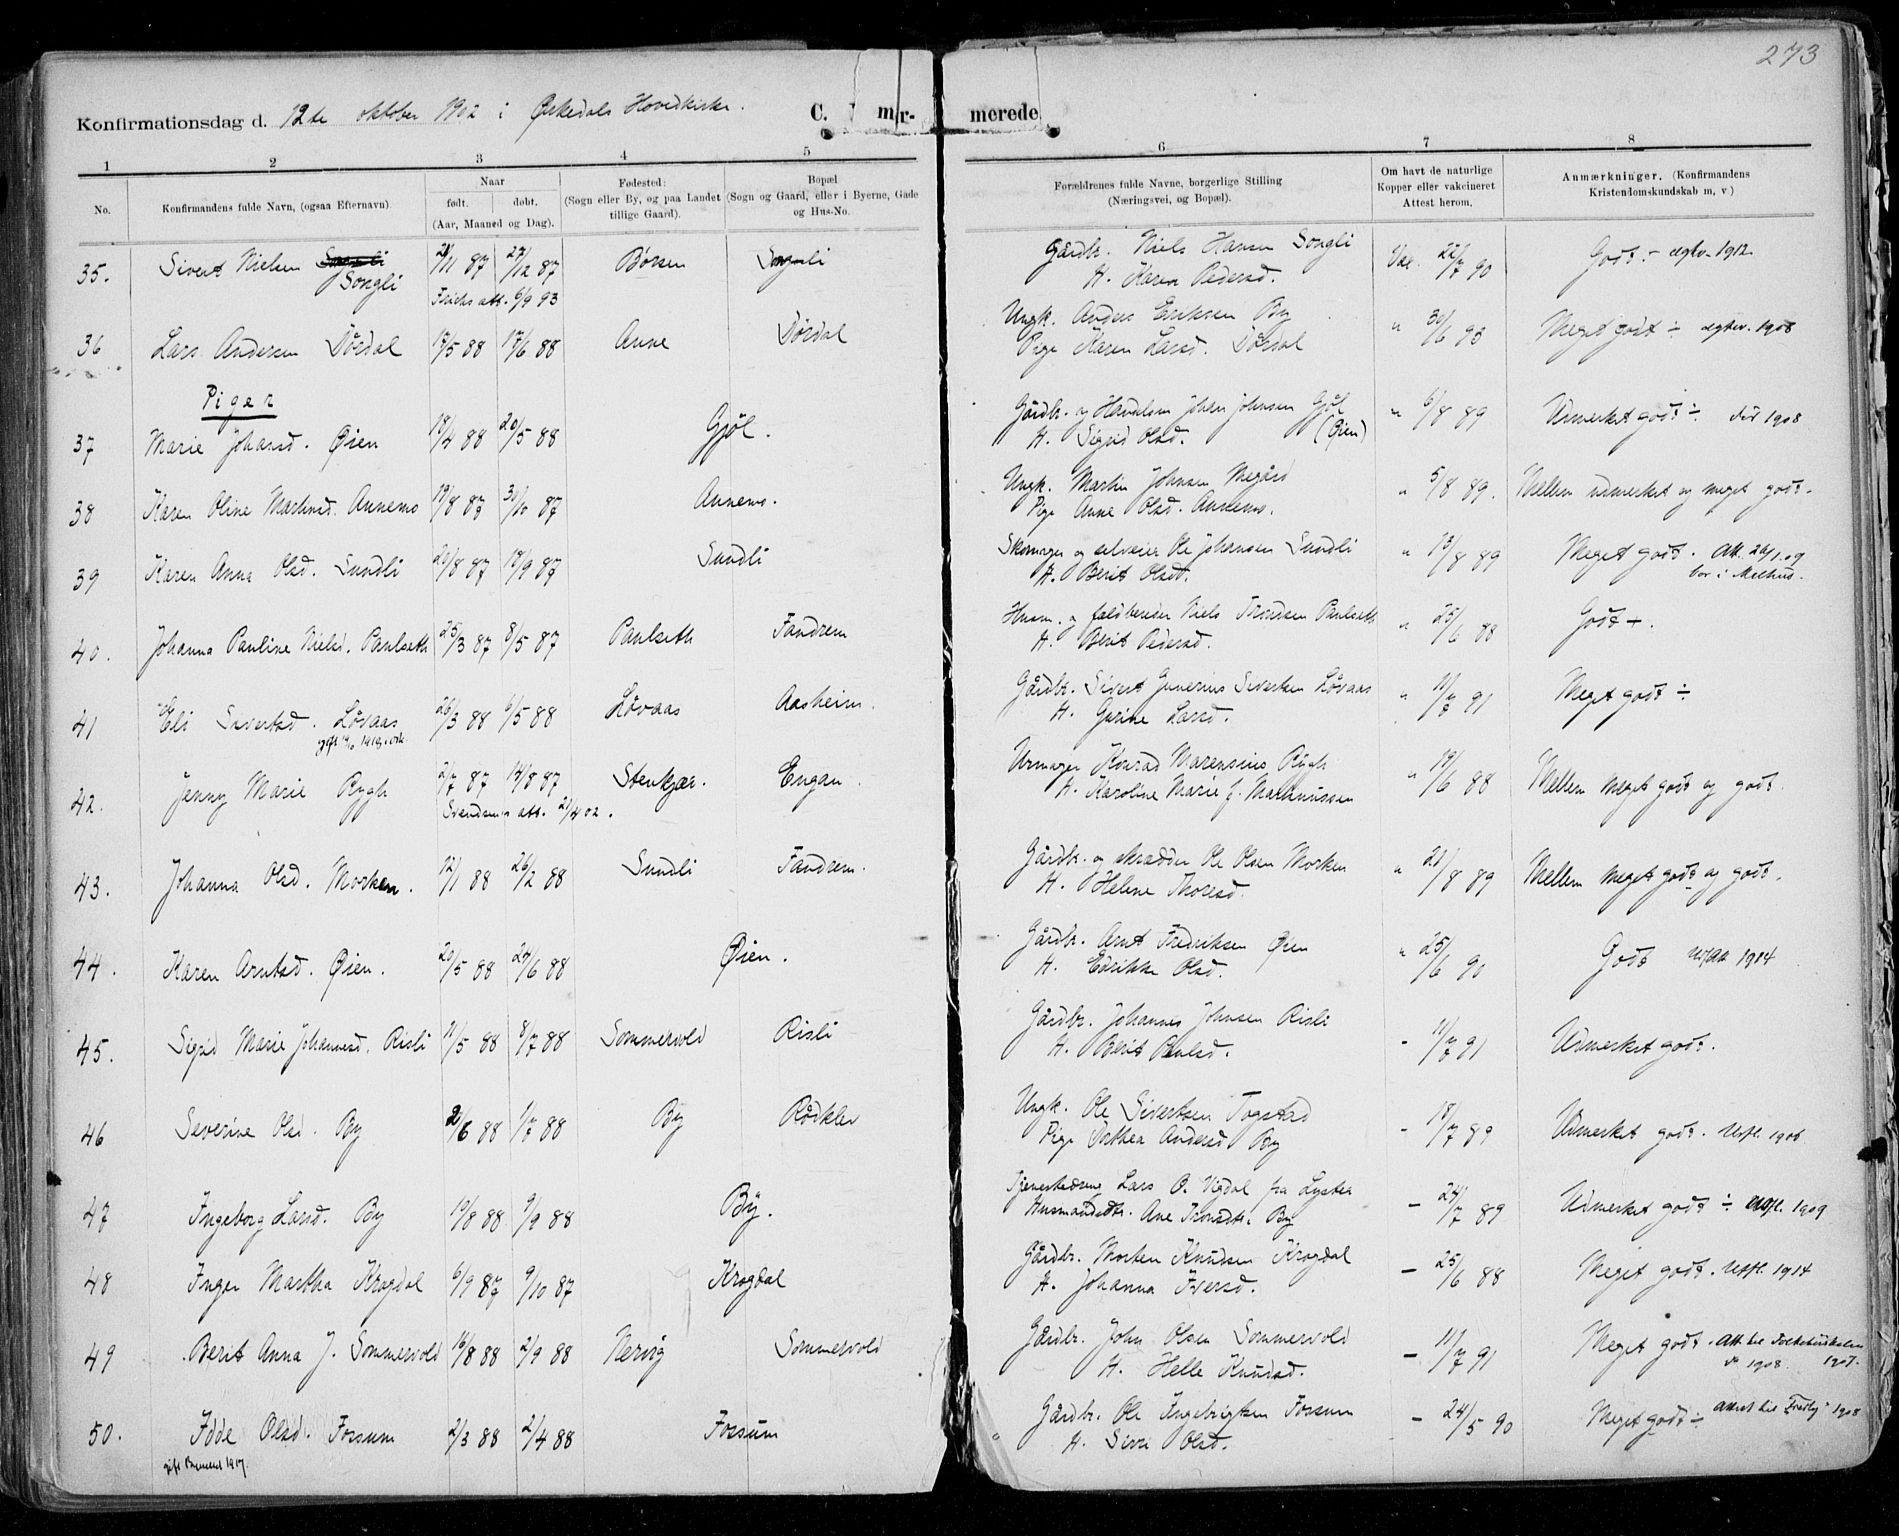 273
Konfirmationsdag d. 12te oktober 1902 i Ørkedals Hovedkirke.
C. mr- merede
1 2 3 4 5 6 7 8
No. Konfirmandens fulde Navn, (ogsaa Efternavn). Naar født. døbt. (Aar, Maaned og Dag). Fødested: (Sogn eller By, og paa Landet tillige Gaard). Bopæl (Sogn og Gaard, eller i Byerne, Gade og Hus-No. Forældrenes fulde Navne, borgerlige Stilling (Næringsvei, og Bopæl). Om havt de naturlige Kopper eller vakcineret Attest herom. Anmærkninger. (Konfirmandens Kristendomskundskab m, v)
35. Sivert Nielsen Songli 21/11 87 27/12 87 Børsen Songli Gårdbr. Niels Hansen Songli Vac. 22/7 90 Godt. - 1912
H. Karen Pedersd.
att. 6/9 93
36 Lars Andersen Dørdal 17/5 88 17/6 88 Anne Dørdal Ungk. Anders Eriksen By " 30/6 93 Meget godt ÷ 1908
Pige Karen Larsd. Dørdal
Piger
37 Marie Johansd. Øien 18/4 88 20/5 88 Gjøl. Gårdbr. og Johan Johnsen Gjøl " 6/8 89 Udmerket godt ÷ 1908
H. Sigrid Olsd. (Øien)
38 Karen Oline Martinsd. Annemo 19/8 87 30/10 87 Annemo. Ungk. Martin Johnsen Megård " 5/8 89. Mellem udmerket og meget godt.
Pige Anne Olsd. Annemo.
39 Karen Anna Olsd. Sundli 20/8 87 18/9 87 Sundli Skomager og selveier Ole Johansen Sundli " 13/8 89 Meget godt. Att. 20/1.09
H. Berit Olsdt. bor i Melhus.
40. Johanna Pauline Nielsd. Paulseth 25/3 87 8/5 87 Paulseth Fandrem Husm. og Niels Trondsen Paulseth " 25/6 88 Godt +.
H. Berit Pedersd.
41 Eli Sivertsd. Løvaas 26/3 88 6/5 88 Løvaas Aasheim. Gårdbr. Sivert Gunerius Sivertsen Løvaas " 11/7 91 Meget godt ÷
gift H. Gurine Larsd.
42. Jenny Marie Rygh 2/7 87 14/8 87 Stenkjær. Engan. Urmager Konrad Marensius Rygh " 19/6 88 Mellem meget godt og godt.
Svendsens att. 21/4 02. H. Karoline Marie f. Martinussen
43. Johanna Olsd. Morken. 12/1 88 26/2 88 Sundli Fandrem. Gårdbr. og skrædder Ole Olsen Morken " 21/8 89 Mellem meget godt og godt.
H. Helene Thoresd.
44. Karen Arntsd. Øien. 20/5 88 24/6 88 Øien. Gårdbr. Arnt Fredriksen Øien " 25/6 90 Godt 1914
H. Edrikke Olsd.
45. Sigrid Marie Johannesd. Risli 11/5 88 8/7 88 Sommervold Risli Gårdbr. Johannes Johnsen Risli - 11/7 91 Udmerket godt.
H. Berit Paulsd.
46 Severine Olsd. By 2/6 88 1/7 88 By Rødklev Ungk. Ole Sivertsen Togstad - 18/7 89 Udmerket godt. Utfl. 1906
Pige Dorthea Andersd. By
47 Ingeborg Larsd. By 19/8 88 9/9 88 By. Lars O. Vigdal fra Lyster - 24/7 89 Udmerket godt ÷ 1909
Husmandsdtr. Ane Trondsdtr. By
48 Inger Martha Krogdal 6/9 87 9/10 87 Krogdal Gårdbr. Morten Knudsen Krogdal - 25/6 88 Meget godt. Utfl. 1914
H. Johanna Iversd.
49 Berit Anna J. Sommervold 16/8 88 2/9 88 Nervig Sommervold Gårdbr. John Olsen Sommervold - 11/7 91 Meget godt. Att. til Folkehøiskolen 1907.
H. Helle Knudsd. do 1908.
50. Idde Olsd. Fossum 2/3 88 2/4 88 Fossum Gårdbr. Ole Ingebrigtsen Fossum - 24/5 90 Meget godt ÷ Attest til 1908
gift 1917. H. Siri Olsd.